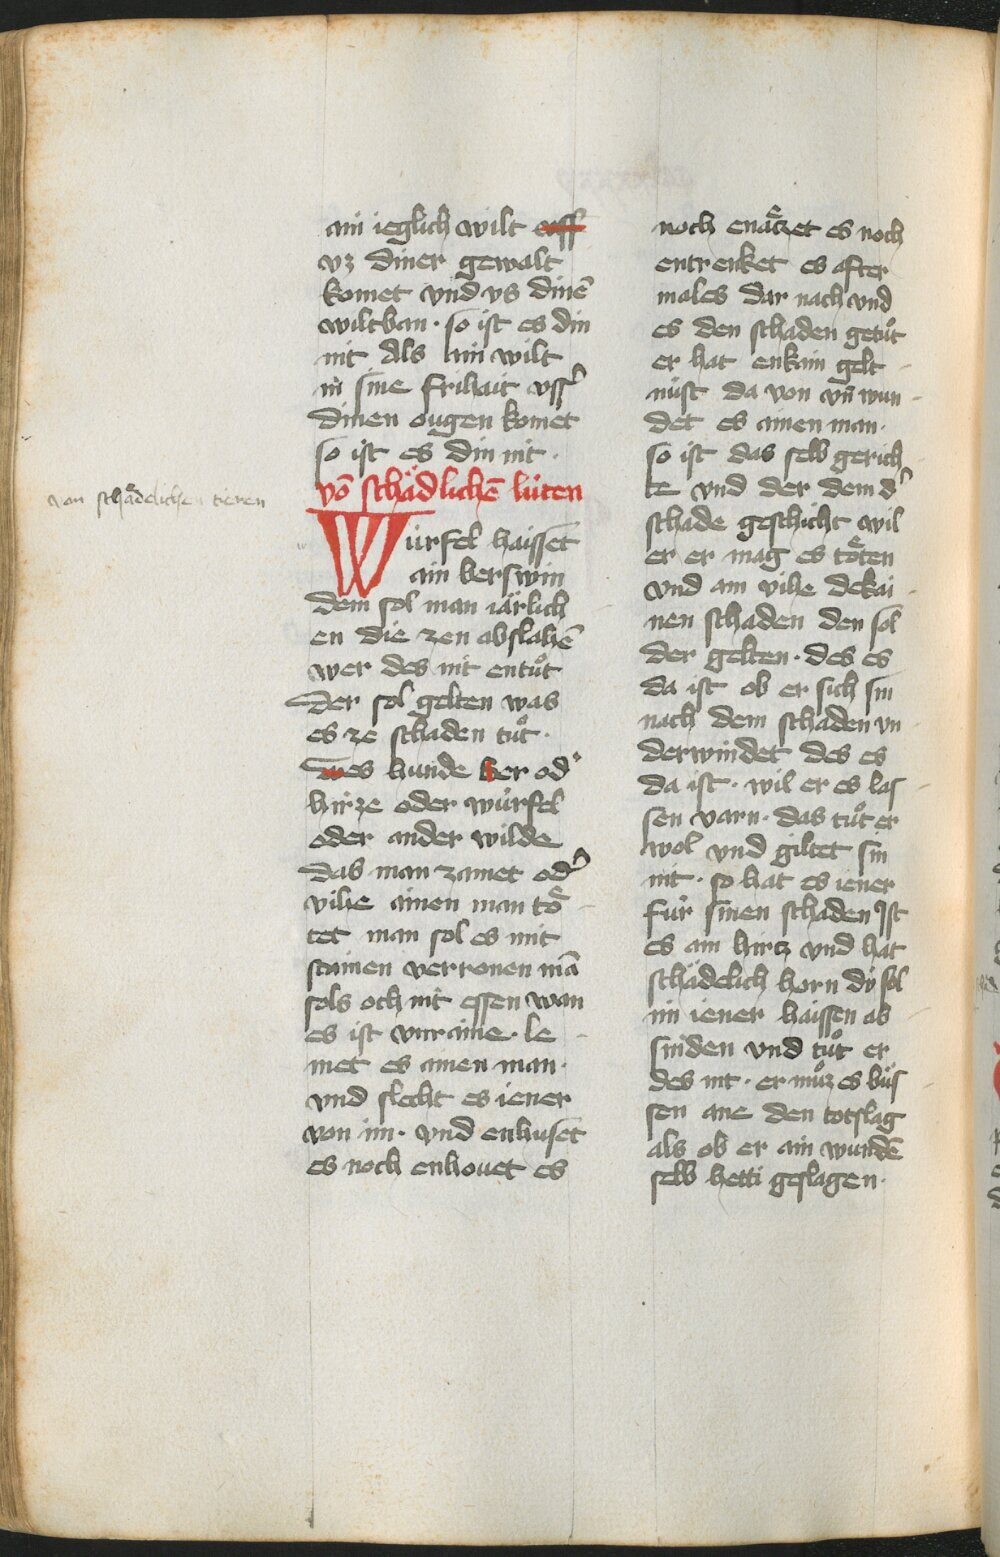 ain ieglich wilt
vz diner gewalt
komet vnd vs dinē
wiltban · so ist es din
nit Als ain wilt
in sine frihait vssˀ
dinen ougen komet
so ist es din nit ·
vō schädlichē lüten
von schädelichen tieren
Würfel haisset
ain berswin
dem sol man iärlich
en die zen abslahē
wer des nit entuͦt
Der sol gelten was
es ze schaden tuͦt ·
wes hunde ber odˀ
hirze oder würfel
oder ander wilde
Das man zamet odˀ
vihe ainen man toͤ
tet man sol es mit
stainen verronen mā
sols och nit essen wan
es ist vnraine · le
met es ainen man ·
vnd slecht es iener
von im · vnd enhuset
es noch enhouet es
noch enaͤtzet es noch
entrenket es after
males dar nach vnd
es den schaden getuͦt
er hat enkain gelt
nüst da von vn̄ wun
det es ainen man ·
so ist das selb gerich
te vnd der dem dˀ
schade geschicht wil
er er mag es toͤten
vnd am vihe dekai
nen schaden den sol
der gelten · des es
da ist ob er sich sin
nach dem schaden vn
derwindet des es
da ist · wil er es las
sen varn · das tuͦt er
wol vnd giltet sin
nit · so hat es iener
für sinen schaden Ist
es ain hirtz vnd hat
schädelich horn dÿ sol
im iener haissen ab
sinden vnd tuͦt er
des nit · er muͦz es büs
sen ane den totslag
als ob er ain wundē
selb hetti geslagen ·